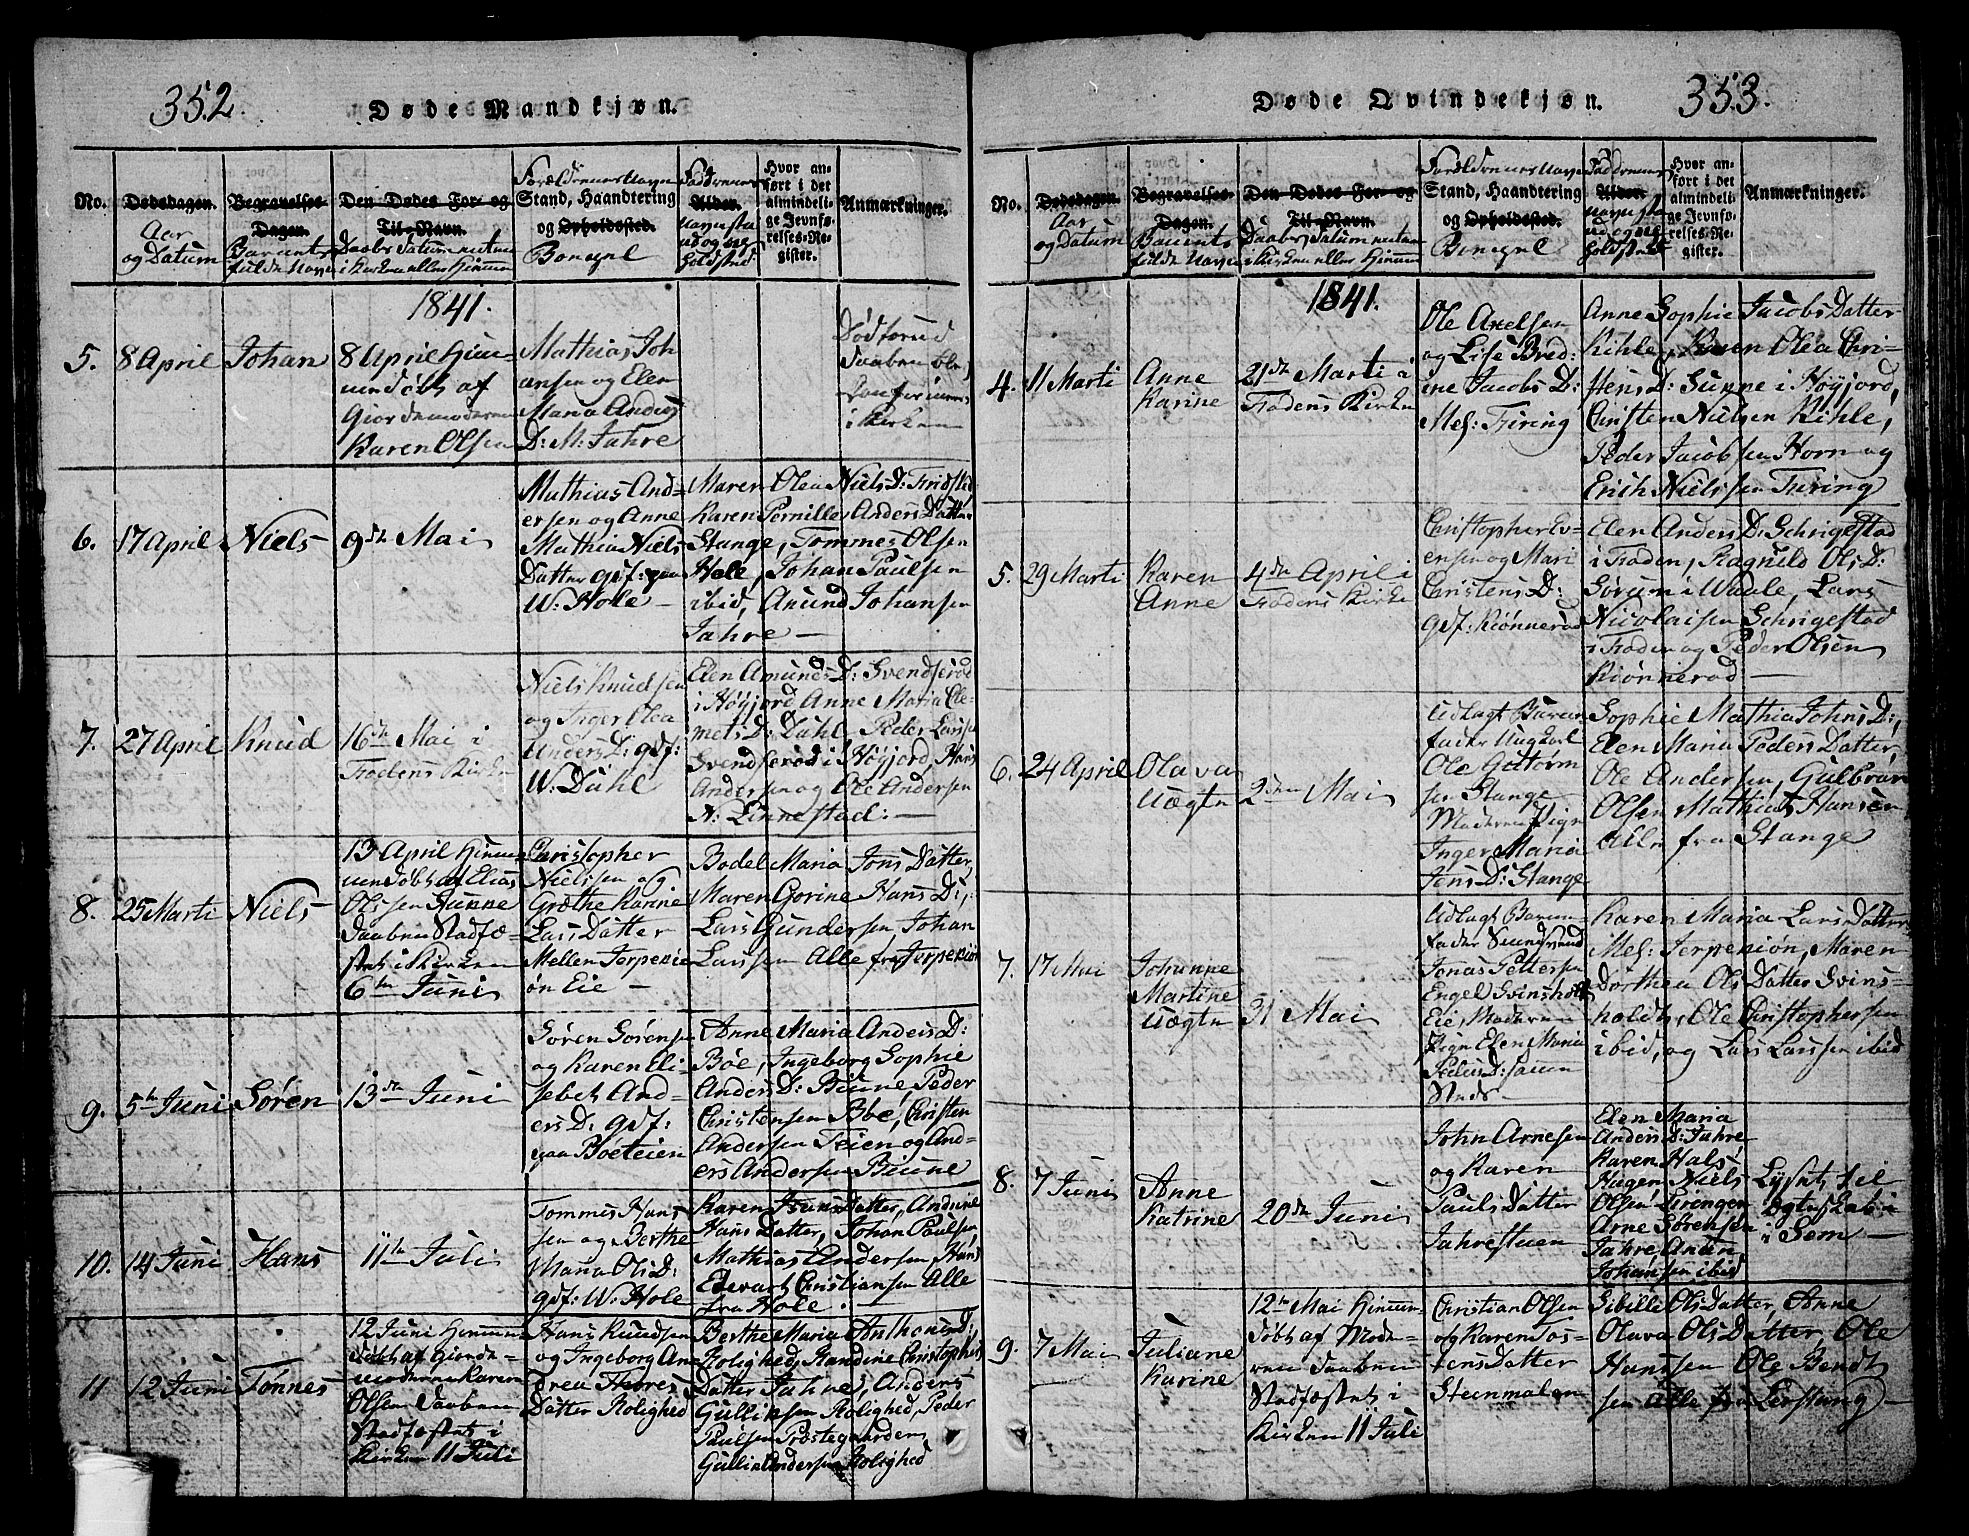 352.
Døde Mandkjøn.
No.
Dødsdagen.
Aar
og Datum
Begravelses-
Dagen.
Barnets
fulde Navn
Den Dødes For- og
Til-Navn.
Daabs Datum enten
i Kirken eller Hjemme
Forældrenes Navne
Stand, Haandtering
og Opholdssted.
Boepæl
Faddernes
Alder.
Navne Sta
nd og op
holdsted
Hvor an-
ført i det
almindeli-
ge Jevnfø-
relses-Re-
gister.
Anmærkninger.
1841.
5.
8 April
Johan
8 April Hjem-
medøbt af
Giordemoderen
Karen Olsen
Mathias Joh
ansen og Elen
Maria Anders
D: M: Jahre
Død forend
Daaben blev
Confirmeret
i Kirken
6.
17 April
Niels
9de Mai
Mathias And-
ersen og Anne
Mathia Niels
Datter gdf: paa
W: Hole
Maren Olea Niels D: Fridsted
Karen Pernille Anders Datter
Stange, Tommes Olsen
Hole, Johan Paulsen
ibid, Amund Johansen
Jahre
7.
27 April
Knud
16de Mai i
Fodens Kirke
Niels Knudsen
og Inger Olea
Anders D: gdf:
W: Dahl
Elen Amunds D: Svendserød
i Høyjord Anne Maria Cle-
mets D: Dahl, Peder Larsen
Svendserød i Høyjord, Hans
Andersen og Ole Andersen
N: Linnestad:
8.
25 Marti
Niels
13 April Hjem
mendøbt af Elias
Olssen Sunne
Daaben Stadfæ-
stet i Kirken
6te Juni
Christopher
Nielssen og
Grethe Karine
Lars Datter
Mellem Jerpekiø-
øn Eie
Bodel Maria Jons Datter,
Maren Gorine Hans D:,
Lars Gundersen, Johan
Larssen Alle fra Jerpekiøn
9.
5te Juni
Søren
13de Juni
Søren Sørensen
og Karen Eli-
sebet And-
ers D: gdf:
paa Bøeteien
Anne Maria Anders D:
Bøe, Ingeborg Sophie
Anders D: Biune Peder
Christensen Bøe, Christen
Andersen Teien og And-
ers Andersen Biune
10.
14 Juni
Hans
11te Juli
Tommes Hans
sen og Berthe
Maria Ols D:
gdf: W: Hole
Karen Hans Datter, Andrine
Hans Datter, Johan Paulsen
Mathias Andersen, Hans
Edevart Christiansen Alle
fra Hole.
11
12 Juni
Tønnes
12 Juni Hjemme
døbt af Giorde-
moderen Karen
Olsen Daaben
Stadfæstet i
Kirken 11 Juli
Hans Knudsen
og Ingeborg An
drea Thores
Datter Rolighed
Berthe Maria Anthons D,
Rolighed, Randine Christophers
Datter Jahre, Anders
Gulliksen Rolighed, Peder
Paulsen Præstegaarden
Gullik Andersen Rolighed
Døde Qvindekjøn.
353.
No.
Dødsdagen.
Aar
og Datum
Begravelses-
Dagen.
Barnets
fulde Navn
Den Dødes For- og
Til-Navn.
Daabs Datum enten
i Kirken eller Hjemme
Forældrenes Navne
Stand, Haandtering
og Opholdssted.
Boepæl
Faddernes
Alder.
Navne Sta
nd og op
holdsted
Hvor an-
ført i det
almindeli-
ge Jevnfø-
relses-Re-
gister.
Anmærkninger.
1841.
4.
11 Marti
Anne
Karine
21de Marti i
Fodens Kirke
Ole Axelsen
og Lise Bred:
ine Jacobs D:
Mel: Firing
Anne Sophie Jacobs Datter
Kihle, Karen Olea Chri-
stens D: Sunne i Høyjord,
Christen Nielsen Kihle,
Peder Jacobsen Horn og
Erich Nielssen Firing
5.
29 Marti
Karen
Anne
4de April i
Fodens Kirke
Christopher Ev-
ensen og Mari
Christens D:
gdf: Kiønnerød
Elen Anders D: Schrigestad
i Foden, Ragnild Ols D:
Sørum i Waale, Lars
Nicolaisen Schrigestad
i Foden og Peder Olsen
Kiønnerød
6.
24 April
Olava
Uægte
2den Mai
Udlagt Barne
fader Ungkarl
Ole Guttorm
sen Stange
Moderen Pigen
Inger Maria
Jens D: Stange
Sophie Mathia Johns D:,
Elen Maria Peders Datter
Ole Andersen, Gulbrand
Olsen Mathias Hansen
Alle fra Stange
7.
17 Mai
Johanne
Martine
Uægte
31 Mai
Udlagt Barne
fader
Jonas Pettersen
Engel Svinsholt
Eie, Moderen
Pigen Elen Maria
D:
Steds
Karen Maria Lars Datter
Mel: Jerpekiøn, Maren
Dorthea Ols Datter Svins-
holdt, Ole Christophersen
ibid, og Lars Larssen ibid
8.
7 Juni
Anne
Katrine
20de Juni
John Arnesen
og Karen
Pauls Datter
Jahrestuen
Elen Maria
Anders D: Jahre
Karen Hals
Hagen, Niels
Olsen Grengen
Arne Sørensen
Jahre, Anun
Johansen ibid
Lyst til
Ægteskab
i Sem
9.
7 Mai
Juliane
Karine
12te Mai Hjemme-
døbt af Mode-
ren Daaben
Stadfæstet i
Kirken 11 Juli
Christian Olsen
og Karen Tos-
tens Datter
Steenmalen
Sibille Ols Datter, Anne
Olava Ols Datter, Ole
Hanssen Ole Bendt
sen Alle fra Lerstang